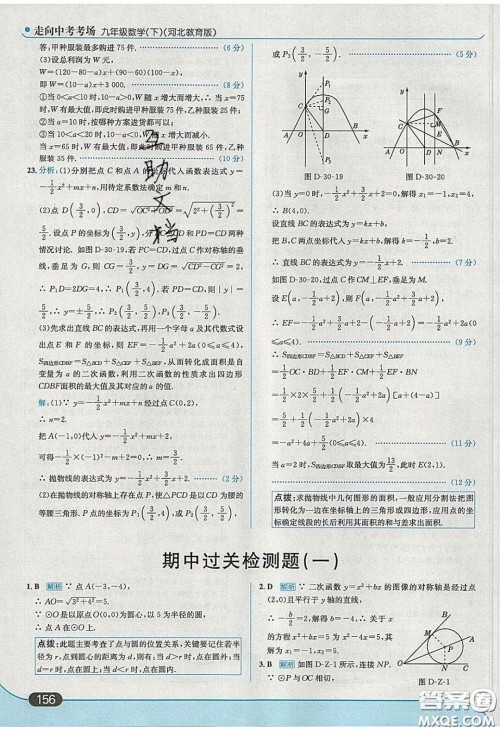 走向中考考场 九年级数学(下)(河北教育版)
答,甲种服装最多购进 75 件. (6 分)
(3)设总利润为 W 元,
W=(120-80-a)x+(90-60)(100-x),
即 W=(10-a)x+3000. (8 分)
①当 0<a<10 时,10-a>0,W 随 x 增大而增大,∴当 x=75
时,W 有最大值,即此时购进甲种服装 75 件,乙种服装 25 件.
②当 a=10 时,按哪种方案进货都可以.
③当 10<a<20 时,10-a<0,W 随 x 增大而减小.
当 x=65 时,W 有最大值,即此时购进甲种服装 65 件,乙种服
装 35 件. (10 分)
23. 分析:(1)分别把点 C 和点 A 的坐标代入函数表达式 y=
-1/2x²+mx+n,用待定系数法确定 m 和 n.
(2)点 D(3/2,0),CD=√(OC²+OD²)=√(2²+(3/2)²)
=5/2,分 PC=CD 与 PD=CD 两种
情况讨论. 如图 D-30-19,若 PC=CD,过点 C 作对称轴的垂
线,垂足为 G,则 CG=3/2,∴DG=√(CD²-CG²)=2.
∴P₁D=2DG=4,∴P₁(3/2,4). 若 PD=CD,则|y|=
5/2,∴y=±5/2,∴P₂(3/2,5/2),P₃(3/2,-5/2).
(3)先求出直线 BC 的表达式,再用一个字母 a 及其代数式设出
点 E 和 F 的坐标,则 EF=-1/2a²+2a(0≤a≤4),
S四边形CDBF=S△BCD+S△CEF+S△BEF,从而转化成面积是自
变量为 a 的二次函数,利用二次函数的性质求出四边形
CDBF面积的最大值及其对应的 a 的值.
解:(1)∵y=-1/2x²+mx+n 经过点 C(0,2),
∴n=2.
把 A(-1,0)代入 y=-1/2x²+mx+2,
得 -1/2×(-1)²-m+2=0,∴m=3/2.
∴抛物线的表达式为 y=-1/2x²+3/2x+2. (2 分)
(2)在抛物线的对称轴上存在点 P,使△PCD 是以 CD 为腰的
等腰三角形. P 点的坐标为(3/2,4)或 P₂(3/2,5/2)
或 P₃(3/2,-5/2). (5 分)
图 D-30-19 图 D-30-20
(3)当 y=0 时,0=-1/2x²+3/2x+2,解得 x₁=-1,x₂=4,
∴B(4,0).
设直线 BC 的表达式为 y=kx+b,
把 B,C 两点坐标代入 y=kx+b,得 k=-1/2,b=2.
∴直线 BC 的表达式为 y=-1/2x+2. (7 分)
如图 D-30-20,过点 C 作 CM⊥EF 于 M.
设 E(a,-1/2a+2),F(a,-1/2a²+3/2a+2),
∴EF=-1/2a²+3/2a+2-(-1/2a+2)=-1/2a²+2a(0≤
a≤4). (9 分)
∵S四边形CDBF=S△BCD+S△CEF+S△BEF
=1/2OC·BD+1/2EF·CM+1/2EF·BN
=1/2×5/2×2+1/2(-1/2a²+2a)[a+(4-a)]
=-a²+4a+5/2(0≤a≤4). (11 分)
当 a=2 时,S四边形CDBF取最大值为13/2,此时 E(2,1).
(12 分)
点拨:求抛物线中几何图形的面积,一般应用分割法把图
形转化为一边在坐标轴上的三角形或四边形,利用点的坐
标确定线段的长后利用其面积的和与差求出面积.
期中过关检测题(一)
1. B 解析 ∵点 A(-3,-4),
∴AO=√(3²+4²)=5.
∵⊙O 是以原点 O(0,0)为圆心,以 5 为半径的圆,
∴点 A 在⊙O 上.
点拨:此题主要考查了点与圆的位置关系,关键要记住若半
径为 r,点到圆心的距离为 d,则有:当 d>r 时,点在圆外;当
d=r 时,点在圆上;当 d<r 时,点在圆内.
2. D 解析 ∵二次函数 y=x²+bx 的图像的对称轴是经过点
(2,0)且平行于 y 轴的直线,
∴-b/2=2,解得 b=-4. ∴关于 x
的方程为 x²-4x=5,解得 x₁=-1,
x₂=5.
3. B 解析 如图 D-Z-1 所示,连接 NP.
图 D-Z-1
156
互助文档
答案圈
MXQE.COM